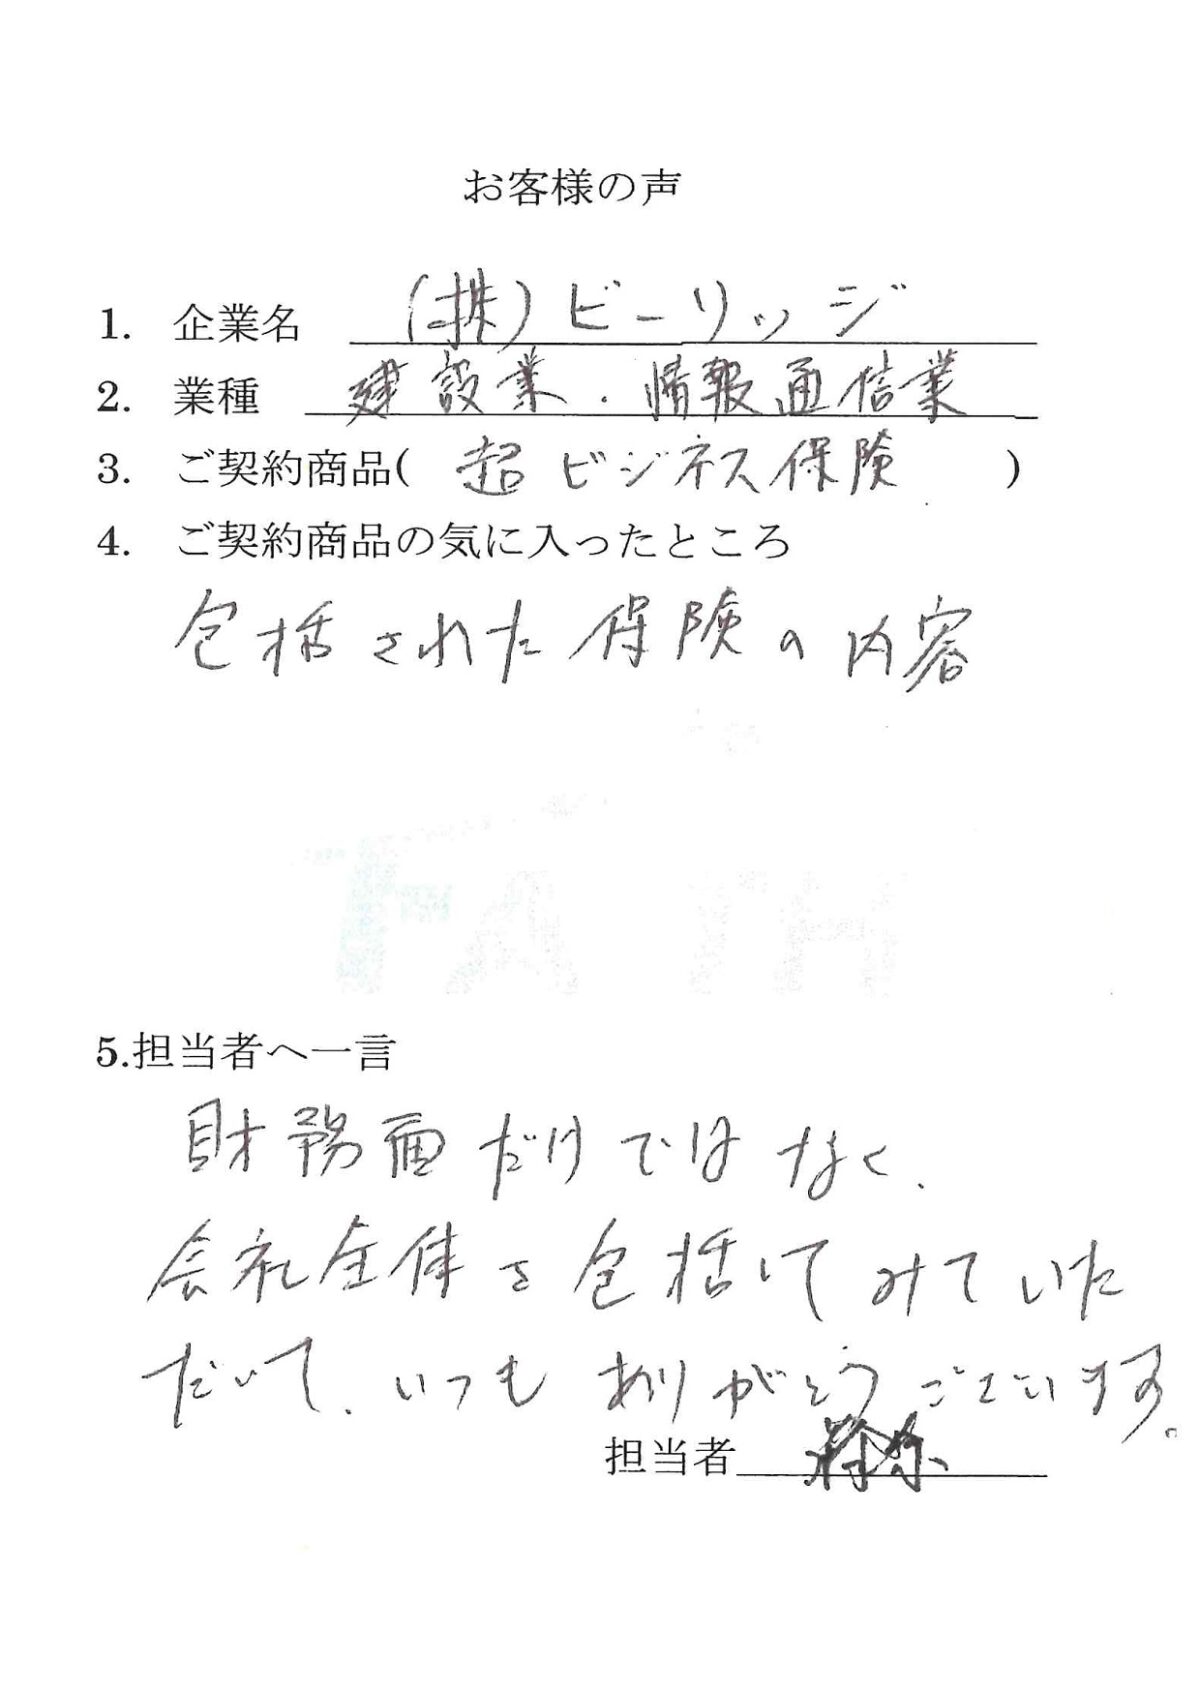 お客様の声
1. 企業名 (株)ビーリッジ
2. 業種 建設業・情報通信業
3. ご契約商品( 超ビジネス保険 )
4. ご契約商品の気に入ったところ
包括された保険の内容
FAITH
5.担当者へ一言
財務面だけではなく、
会社全体を包括してみていた
だいて、いつもありがとうございます。
担当者